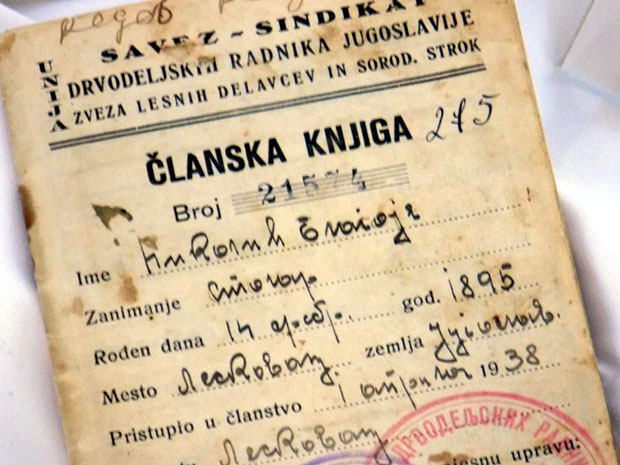 SAVEZ - SINDIKAT
UNIJA
DRVODELJSKIH RADNIKA JUGOSLAVIJE
ZVEZA LESNIH DELAVCEV IN SOROD. STROK
ČLANSKA KNJIGA 215
Broj 21574
Ime Николић Благоје
Zanimanje столар
Rođen dana 14 фебр. god. 1895
Mesto Лесковац zemlja Југослав.
Pristupio u članstvo 1 априла 1938
Лесковац
ДРВОДЕЉСКИХ
upravu: